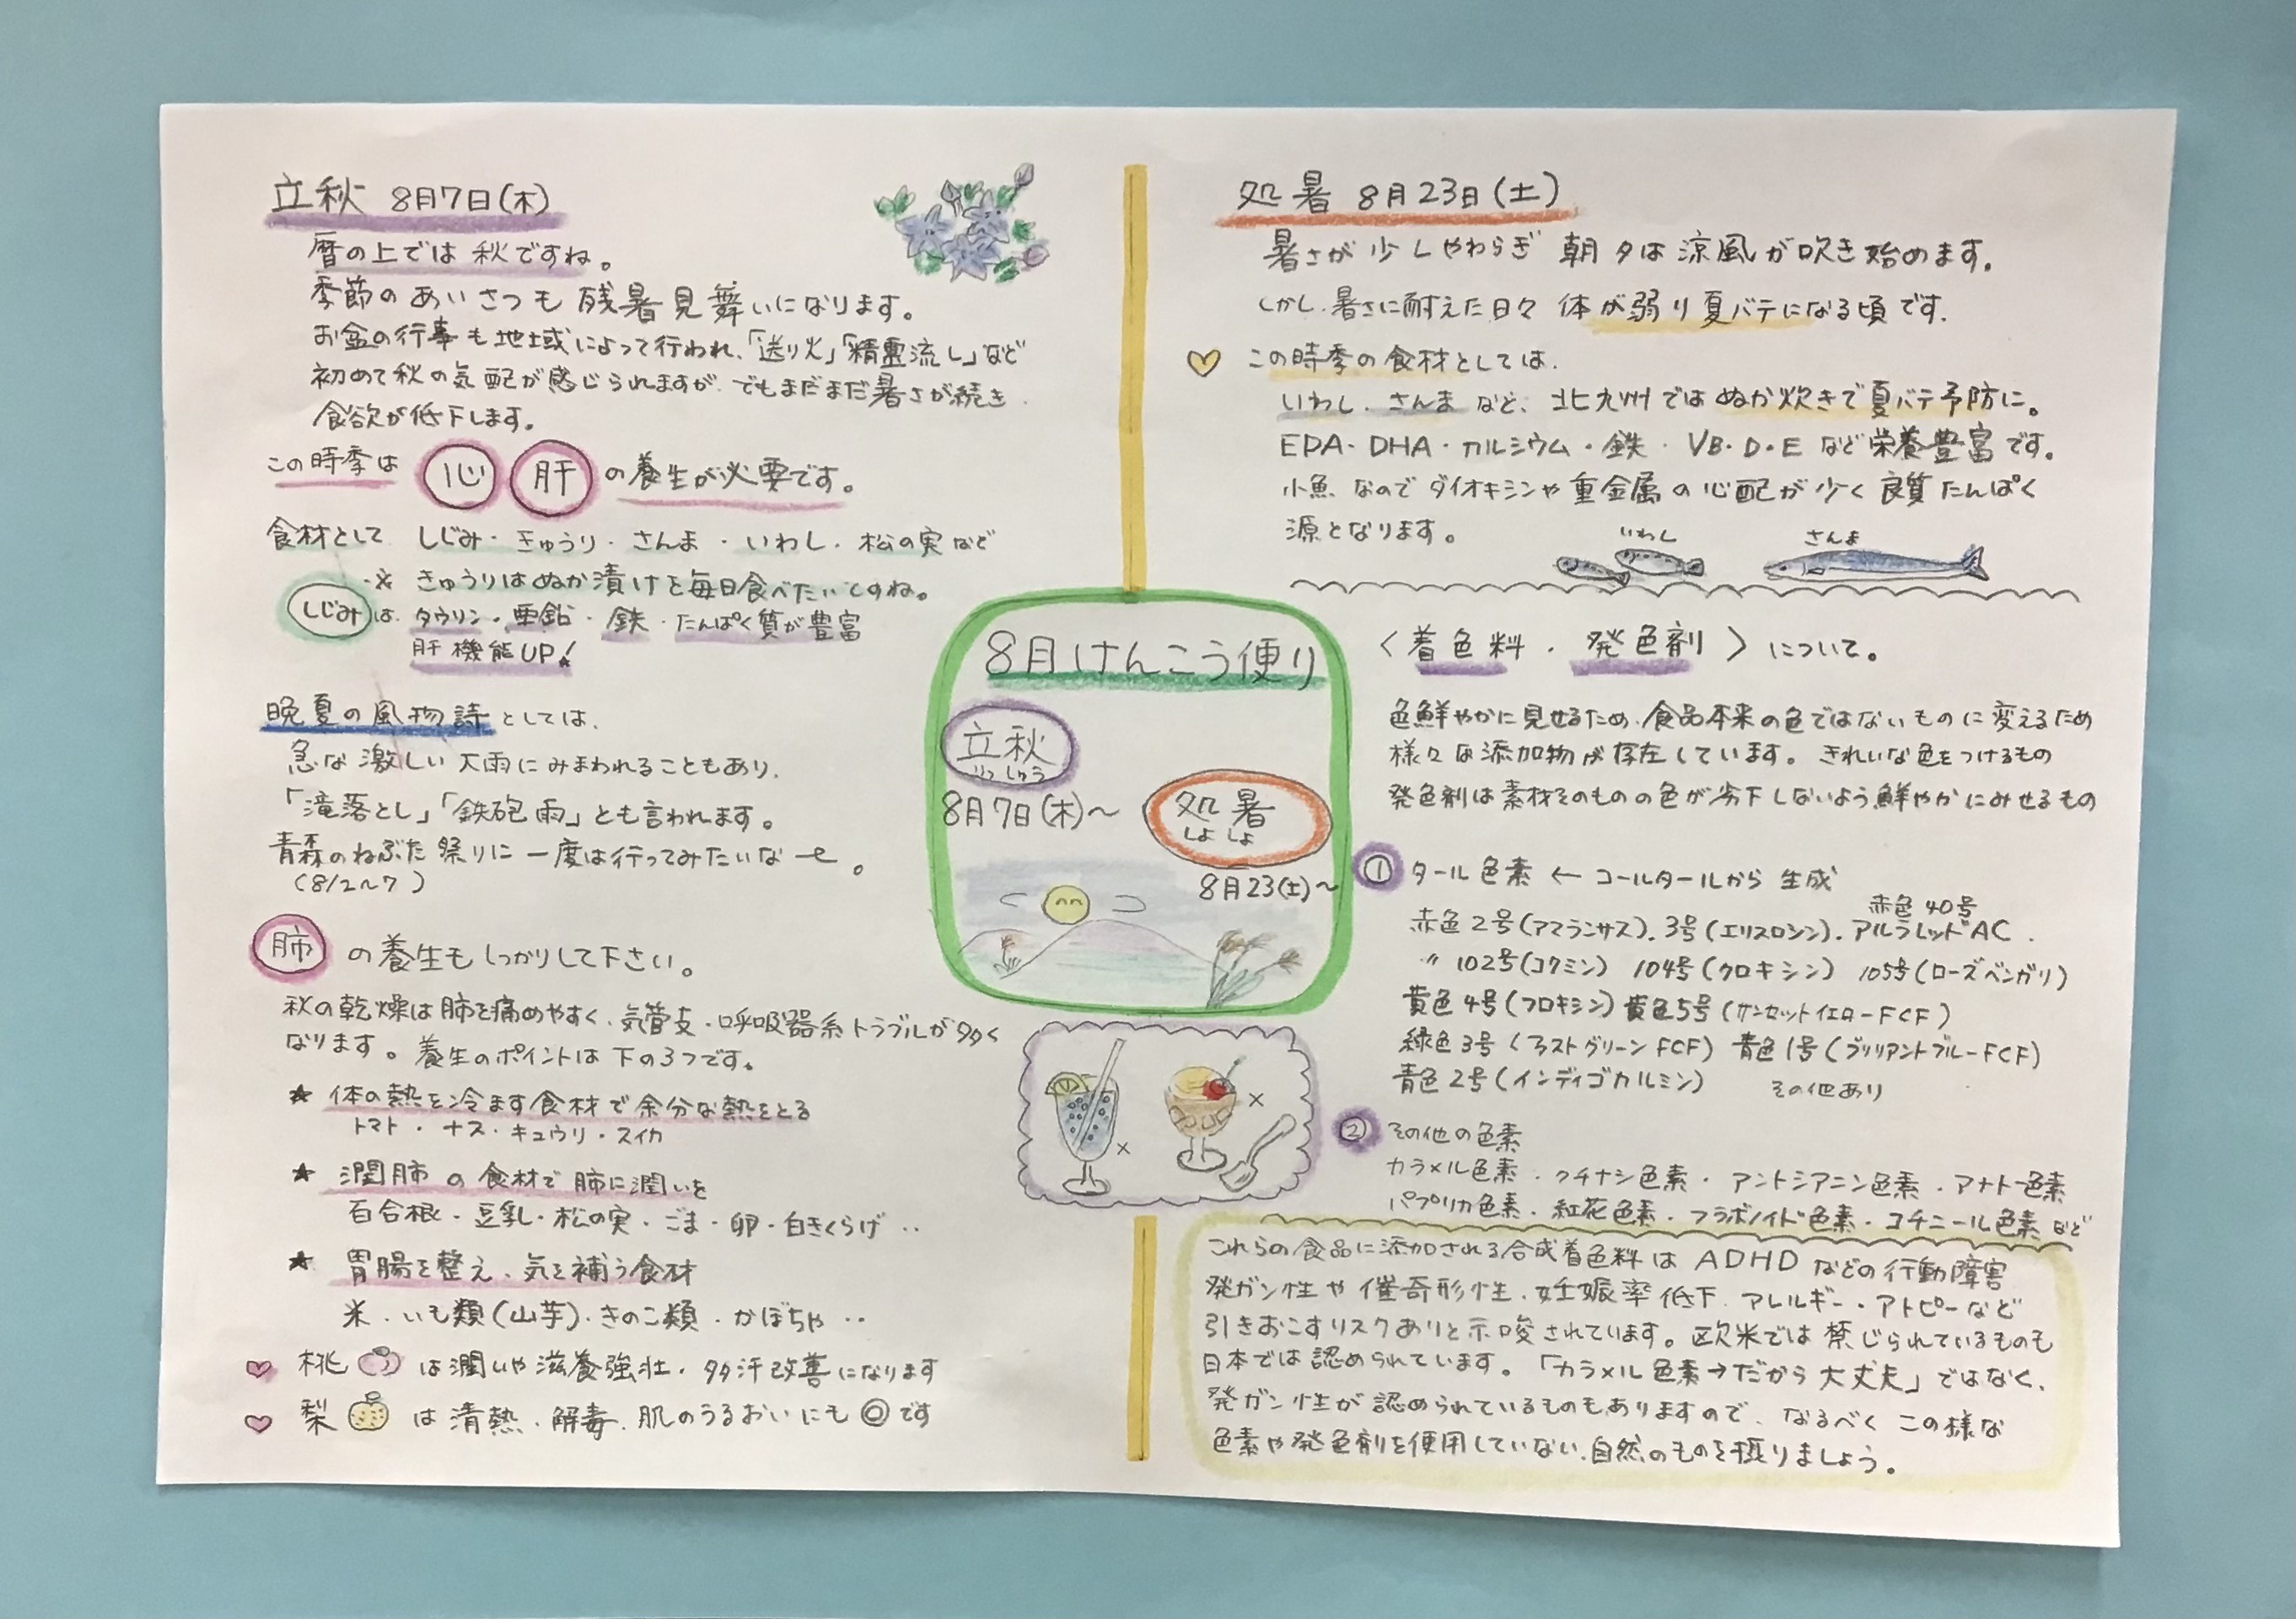 立秋 8月7日(木)
暦の上では 秋ですね。
季節のあいさつも 残暑見舞いになります。
お盆の行事も地域によって行われ、「送り火」「精霊流し」など
初めて秋の気配が感じられますが、でもまだまだ暑さが続き
食欲が低下します。
この時季は 心 肝 の養生が必要です。
食材として しじみ・きゅうり・さんま・いわし・松の実など
※ きゅうりはぬか漬けを毎日食べたいですね。
しじみは、タウリン・亜鉛・鉄・たんぱく質が豊富
肝機能UP!
晩夏の風物詩としては、
急な激しい大雨にみまわれることもあり、
「滝落とし」「鉄砲雨」とも言われます。
青森のねぶた祭りに一度は行ってみたいなーぁ。
(8/2~7)
肺 の養生もしっかりして下さい。
秋の乾燥は肺を痛めやすく、気管支・呼吸器系トラブルが多く
なります。養生のポイントは下の3つです。
★ 体の熱を冷ます食材で余分な熱をとる
トマト・ナス・キュウリ・スイカ
★ 潤肺の食材で肺に潤いを
百合根・豆乳・松の実・ごま・卵・白きくらげ‥
★ 胃腸を整え、気を補う食材
米・いも類(山芋)・きのこ類・かぼちゃ‥
桃 は潤いや滋養強壮・多汗改善になります
梨 は清熱、解毒、肌のうるおいにも◎です
8月けんこう便り
立秋
りっしゅう
8月7日(木)~
処暑
しょしょ
8月23(土)~
処暑 8月23日(土)
暑さが少しやわらぎ 朝夕は涼風が吹き始めます。
しかし、暑さに耐えた日々 体が弱り夏バテになる頃です。
この時季の食材としては、
いわし、さんま など、北九州ではぬか炊きで夏バテ予防に。
EPA・DHA・カルシウム・鉄・VB・D・Eなど栄養豊富です。
小魚なのでダイオキシンや重金属の心配が少く良質たんぱく
源となります。
いわし さんま
〈着色料・発色剤〉について。
色鮮やかに見せるため、食品本来の色ではないものに変えるため
様々な添加物が存在しています。きれいな色をつけるもの
発色剤は素材そのものの色が劣下しないよう鮮やかにみせるもの
① タール色素 ← コールタールから生成
赤色40号
赤色2号(アマランサス)、3号(エリスロシン)、アルラレッドAC、
〃 102号(コクミン) 104号(クロキシン) 105号(ローズベンガリ)
黄色4号(フロキシン) 黄色5号(サンセットイエローFCF)
緑色3号(ファストグリーンFCF) 青色1号(ブリリアントブルーFCF)
青色2号(インディゴカルミン) その他あり
② その他の色素
カラメル色素・クチナシ色素・アントシアニン色素・アナトー色素
パプリカ色素・紅花色素・フラボノイド色素・コチニール色素など
これらの食品に添加される合成着色料はADHDなどの行動障害
発ガン性や催奇形性、妊娠率低下、アレルギー・アトピーなど
引きおこすリスクありと示唆されています。欧米では禁じられているものも
日本では認められています。「カラメル色素→だから大丈夫」ではなく、
発ガン性が認められているものもありますので、なるべくこの様な
色素や発色剤を使用していない、自然のものを摂りましょう。